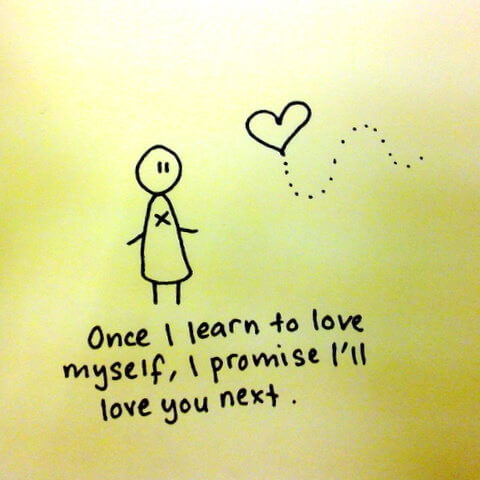 Once I learn to love
myself, I promise I'll
love you next.